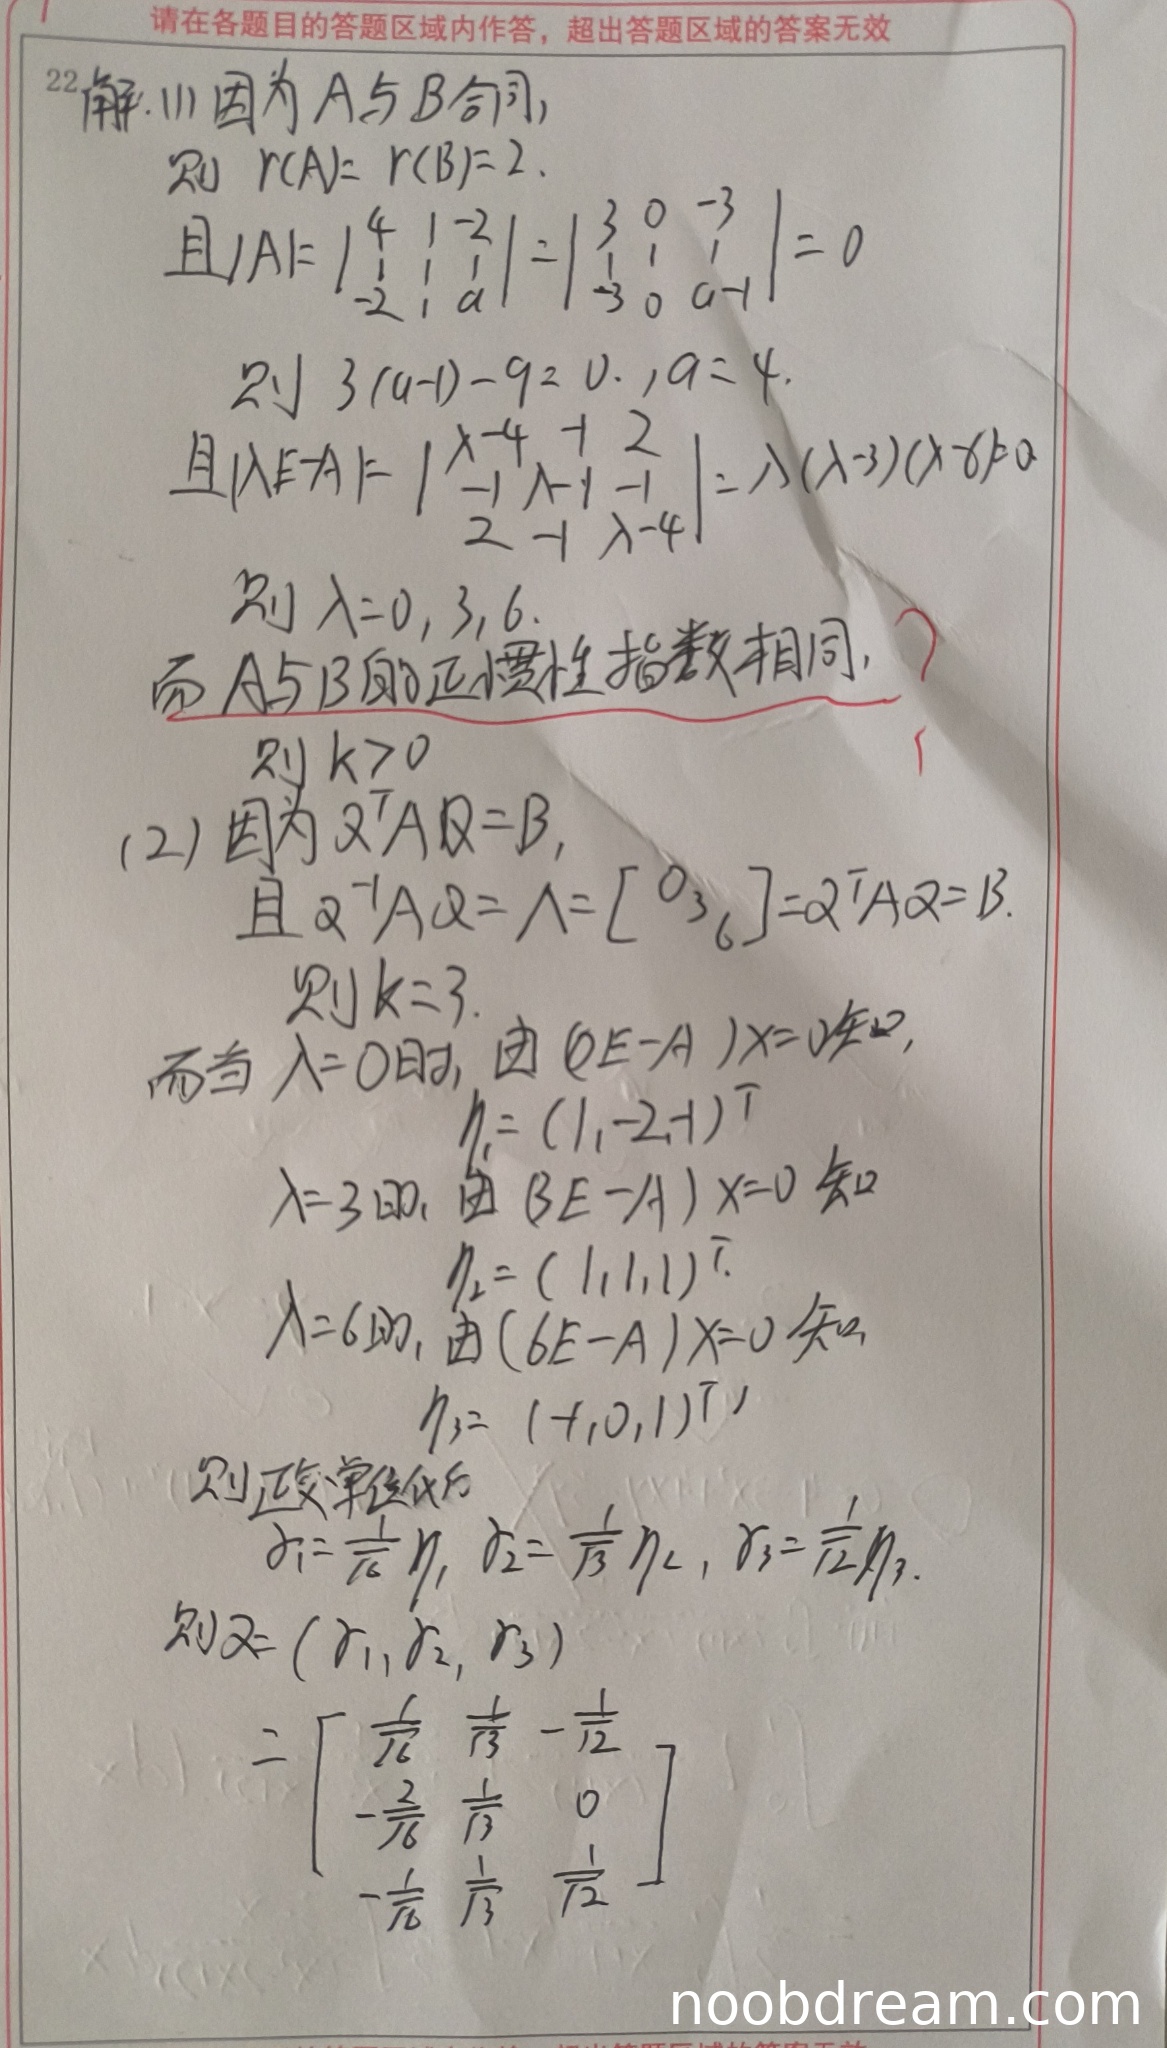 请在各题目的答题区域内作答，超出答题区域的答案无效
22 解.(1)因为A与B合同,
则 r(A)= r(B)=2.
且|A|= | 4 1 -2 | = | 3 0 -3 | = 0
1 1 1 1 1 1
-2 1 a -3 0 a-1
则 3(a-1)-9=0. , a=4.
且|λE-A|= | λ-4 -1 2 | = λ(λ-3)(λ-6)=0
-1 λ-1 -1
2 -1 λ-4
则 λ=0, 3, 6.
而 A与B的正惯性指数相同, ?
则 k>0
(2) 因为 QᵀAQ=B,
且 Q⁻¹AQ=Λ=[ 0 3 6 ]=QᵀAQ=B.
则 k=3.
而当 λ=0时, 由 (0E-A)x=0知,
η₁= (1,-2,-1)ᵀ
λ=3时, 由 (3E-A)x=0 知
η₂= (1,1,1)ᵀ.
λ=6时, 由(6E-A)x=0 知
η₃= (-1,0,1)ᵀ,
则正交单位化后
γ₁= 1/√6 η₁ γ₂= 1/√3 η₂, γ₃= 1/√2 η₃.
则Q= (γ₁, γ₂, γ₃)
= [ 1/√6 1/√3 -1/√2 ]
-2/√6 1/√3 0
-1/√6 1/√3 1/√2
noobdream.com